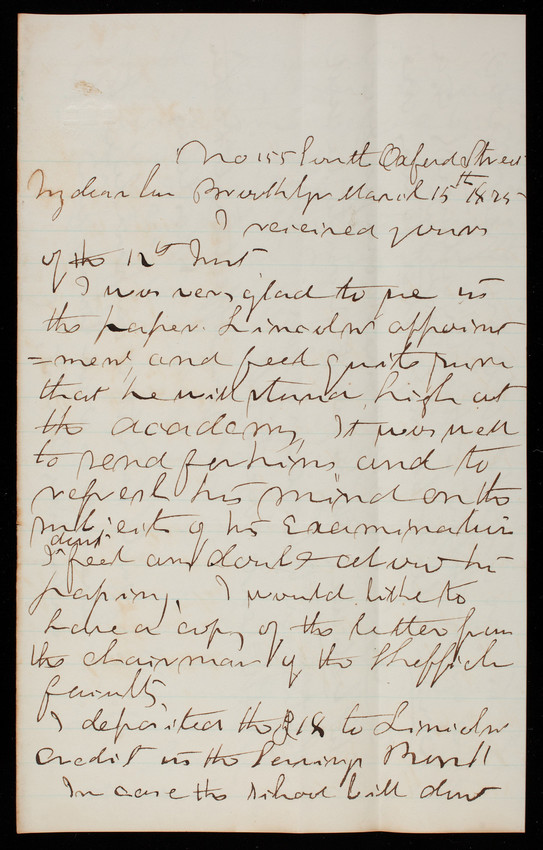 No 155 South Oxford Street
My dear Son Brooklyn March 15th 1875
I received yours
of the 12th Inst
I was very glad to see in
the paper Lincolns appoint
=ment, and feel quite sure
that he will stand high at
the academy, It was well
to send for him and to
refresh his mind on the
subject of his Examination
I dont feel any doubt about his
passing. I would like to
have a copy of the letter from
the chairman of the Sheffield
faculty
I deposited the $18 to Lincolns
credit in the Savings Bank
In case the school bill dont